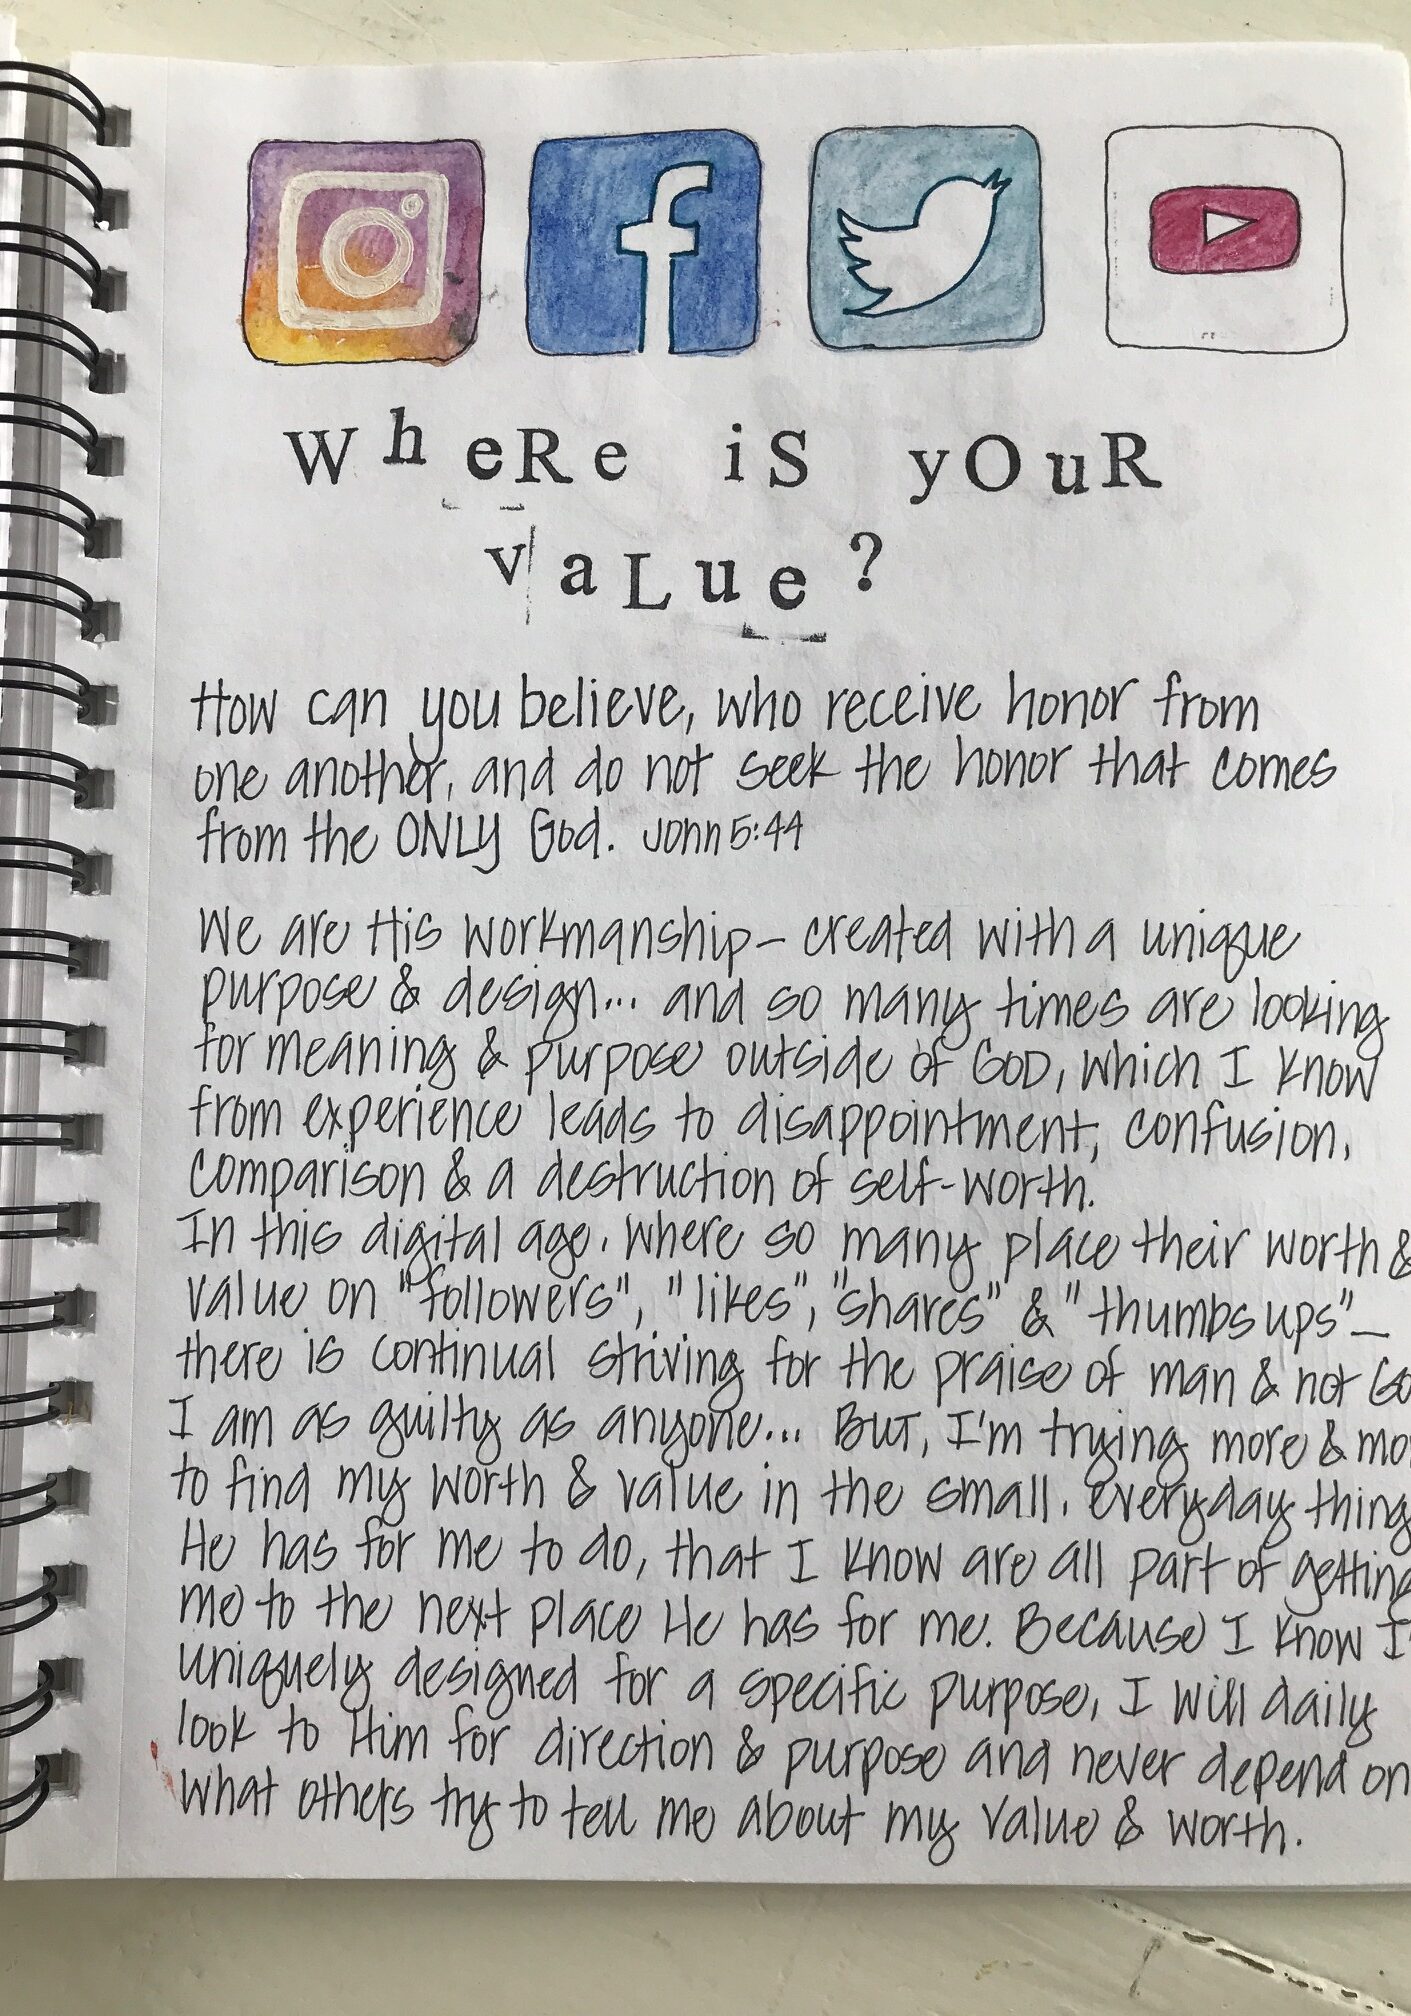 WheRe iS yOuR
vaLue?
How can you believe, who receive honor from
one another, and do not seek the honor that comes
from the ONLY God. John 5:44
We are His workmanship – created with a unique
purpose & design... and so many times are looking
for meaning & purpose outside of GOD, which I know
from experience leads to disappointment, confusion,
comparison & a destruction of self-worth.
In this digital age, where so many place their worth &
value on "followers", "likes", "shares" & "thumbs ups" –
there is continual striving for the praise of man & not Go
I am as guilty as anyone... BUT, I'm trying more & mo
to find my worth & value in the small, everyday thing
He has for me to do, that I know are all part of getting
me to the next place He has for me. Because I know I'
uniquely designed for a specific purpose, I will daily
look to Him for direction & purpose and never depend on
what others try to tell me about my value & worth.